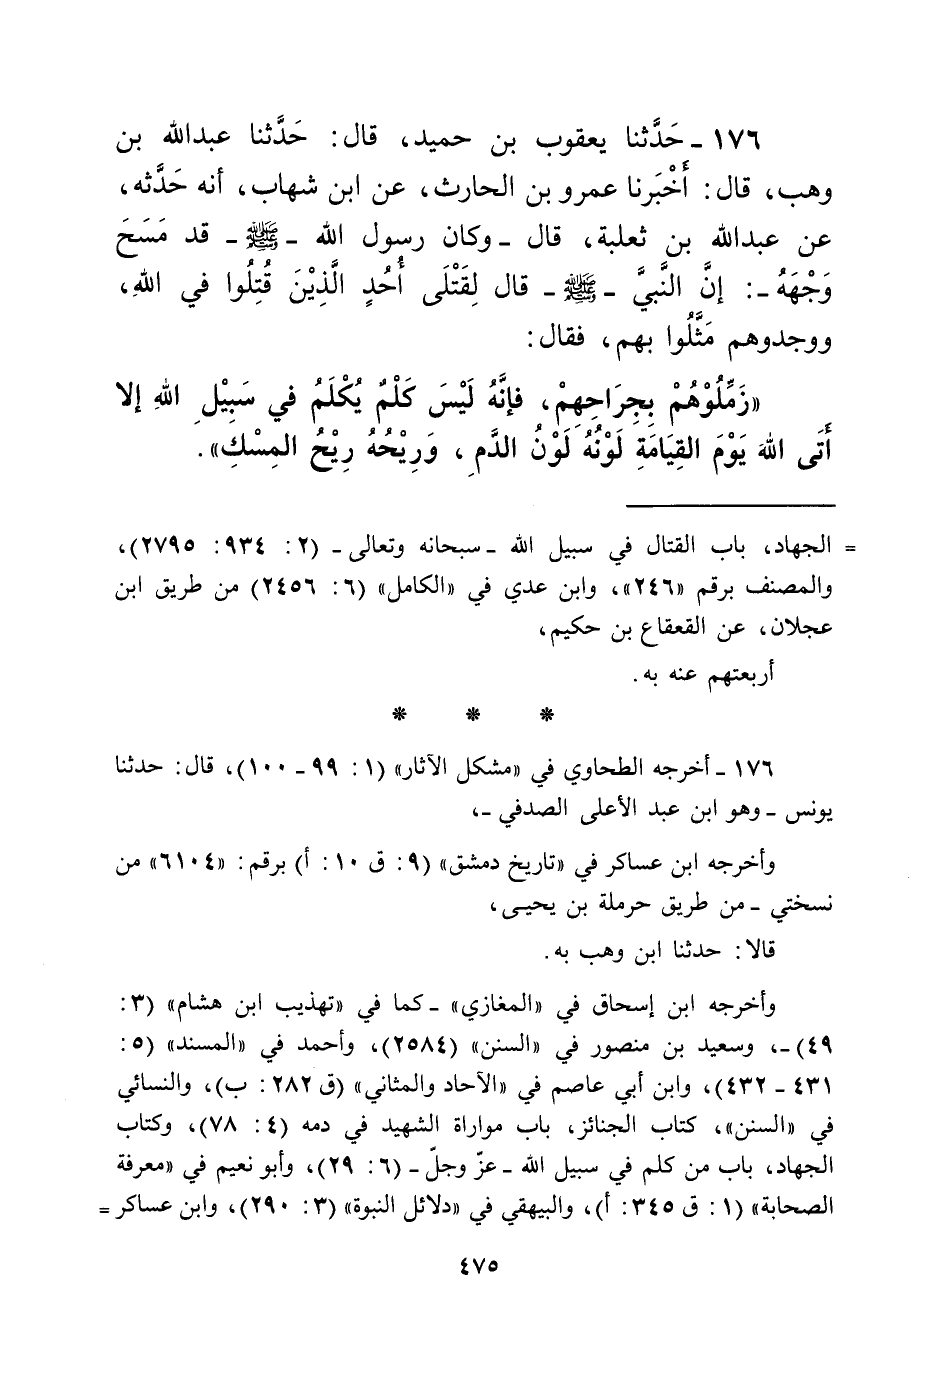 ١٧٦ - حَدَّثنا يعقوب بن حميد، قال: حَدَّثنا عبدالله بن
وهب، قال: أَخْبَرنا عمرو بن الحارث، عن ابن شهاب، أنه حَدَّثه،
عن عبدالله بن ثعلبة، قال - وكان رسول الله - ﷺ - قد مَسَحَ
وَجْهَهُ -: إنَّ النَّبيَّ - ﷺ - قال لِقَتْلَى أُحُدٍ الَّذِيْنَ قُتِلُوا في اللهِ،
ووجدوهم مَثَّلُوا بهم، فقال:
«زَمِّلُوْهُمْ بِجِرَاحِهِمْ، فإنَّهُ لَيْسَ كَلْمٌ يُكْلَمُ في سَبِيْلِ اللهِ إلا
أَتَى اللهَ يَوْمَ القِيَامَةِ لَوْنُهُ لَوْنُ الدَّمِ، وَرِيْحُهُ رِيْحُ المِسْكِ».
= الجهاد، باب القتال في سبيل الله - سبحانه وتعالى - (٢: ٩٣٤: ٢٧٩٥)،
والمصنف برقم «٢٤٦»، وابن عدي في «الكامل» (٦: ٢٤٥٦) من طريق ابن
عجلان، عن القعقاع بن حكيم،
أربعتهم عنه به.
* * *
١٧٦ - أخرجه الطحاوي في «مشكل الآثار» (١: ٩٩ - ١٠٠)، قال: حدثنا
يونس - وهو ابن عبد الأعلى الصدفي -،
وأخرجه ابن عساكر في «تاريخ دمشق» (٩: ق ١٠: أ) برقم: «٦١٠٤» من
نسختي - من طريق حرملة بن يحيى،
قالا: حدثنا ابن وهب به.
وأخرجه ابن إسحاق في «المغازي» - كما في «تهذيب ابن هشام» (٣:
٤٩) -، وسعيد بن منصور في «السنن» (٢٥٨٤)، وأحمد في «المسند» (٥:
٤٣١ - ٤٣٢)، وابن أبي عاصم في «الآحاد والمثاني» (ق ٢٨٢: ب)، والنسائي
في «السنن»، كتاب الجنائز، باب مواراة الشهيد في دمه (٤: ٧٨)، وكتاب
الجهاد، باب من كلم في سبيل الله - عزّ وجلّ - (٦: ٢٩)، وأبو نعيم في «معرفة
الصحابة» (١: ق ٣٤٥: أ)، والبيهقي في «دلائل النبوة» (٣: ٢٩٠)، وابن عساكر =
٤٧٥